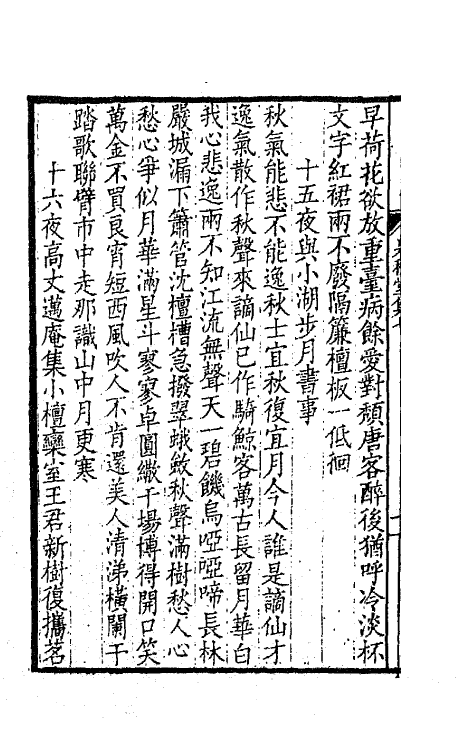 早荷花欲放重臺病餘愛對頹唐客醉後猶呼冷淡杯
文字紅裙兩不廢隔簾檀板一低徊
十五夜與小湖步月書事
秋氣能悲不能逸秋士宜秋復宜月今人誰是謫仙才
逸氣散作秋聲來謫仙已作騎鯨客萬古長留月華白
我心悲逸兩不知江流無聲天一碧饑烏啞啞啼長林
嚴城漏下簫管沈檀槽急撥翠蛾斂秋聲滿樹愁人心
愁心爭似月華滿星斗寥寥卓圓繖千場樽得開口笑
萬金不買良宵短西風吹人不肯還美人清涕橫闌干
踏歌聯臂市中走那識山中月更寒
十六夜高丈邁庵集小檀欒室王君新樹復攜茗